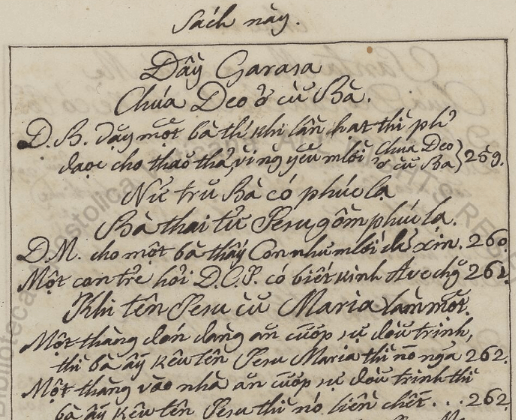 Sách này.
Dấy Garasa
Chúa Deo ở cù Bà.
D.B. dạy một bà thì khi lần hạt thì phỉ
đọc cho thảo thả, vì ng yêu mlời Chúa Deo ở cù Bà 259.
Nữ trũ Bà có phúc la
Bà thai tử Jesu gồm phúc la.
D.M. cho một bà thấy Con như mlời đã xin. 260.
Một con trẻ hỏi D.C.J. có biết kinh Ave chg̃ 261.
Khi tên Jesu cù Maria làm một.
Một thàng đón đàng ăn cướp sự đồu trinh,
thì bà ấy kêu tên Jesu Maria thì nó ngã 262.
Một thàng vào nhà ăn cướp sự đồu trinh thì
bà ấy kêu tên Jesu thì nó liền chết... 262